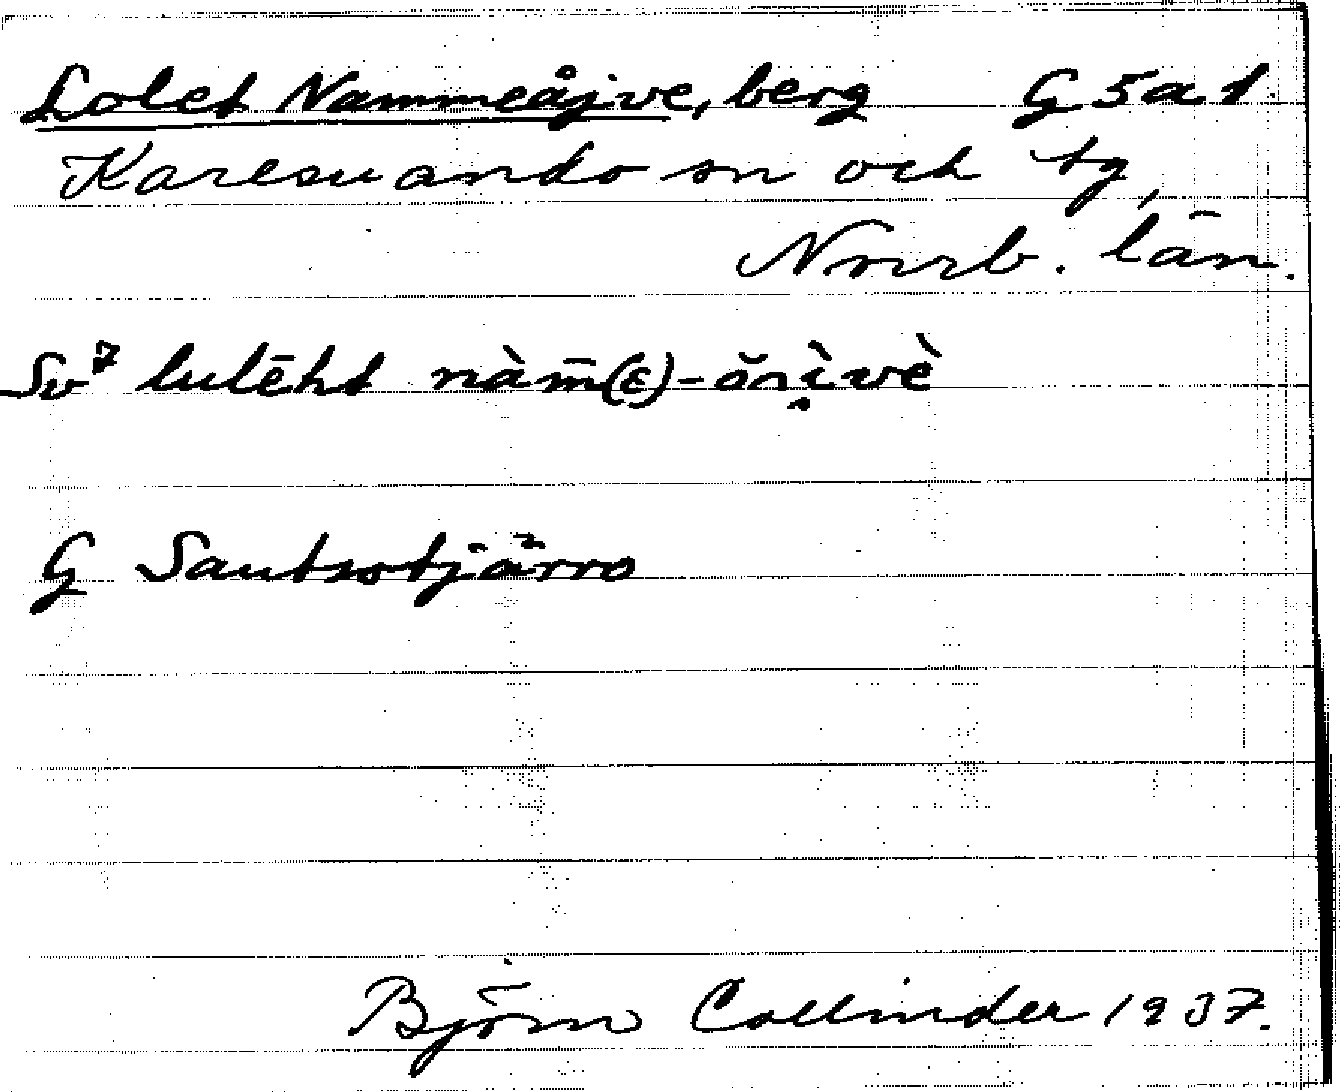 Lolet Nammeåjve, berg G 5 a 1.
Karesuando sn och tg,
Norrb. län.
Sv⁷ lulēht nàm̄(ε)-
G Sautsotjärro
Björn Collinder 1937.